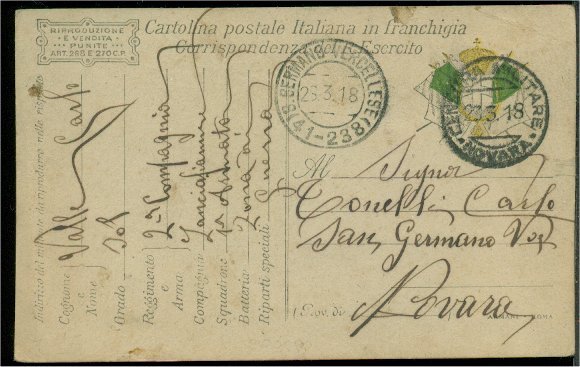 RIPRODUZIONE
E VENDITA
PUNITE
ART. 268 E 270 C.P.
Cartolina postale Italiana in franchigia
Corrispondenza del R. Esercito
S. GERMANO VERCELLESE
(41-238)
23.3.18
MILITARE
23.3.18
NOVARA
Indirizzo del mittente da riprodurre nelle risposte
Cognome e Nome Valle Carlo
Grado Sol
Reggimento e Arma 2ª Compagnia
Compagnia Lanciafiamme
Squadrone 1ª Armata
Batteria Zona di
Riparti speciali Guerra
Al Signor
Tonelli Carlo
San Germano
(Prov. di Novara
ROMA